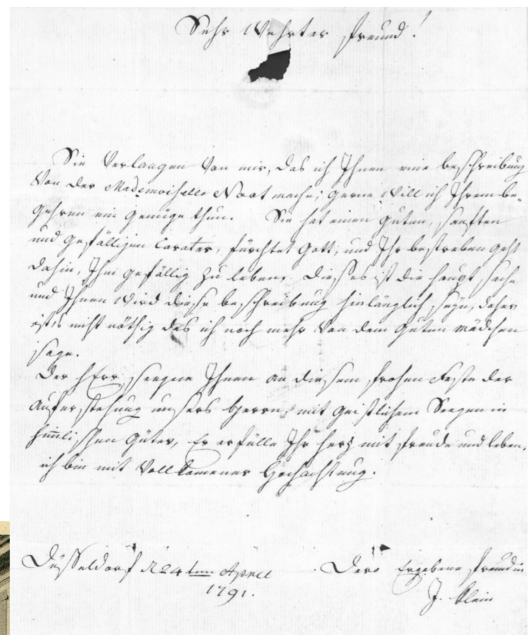 Sehr Wehrter freund!
Sie Verlangen Von mir, das ich Ihnen eine beschreibung
Von der Mademoiselle Noot mache; gerne Will ich Ihrem be-
gehren ein genüge thun. Sie hat einen guten, sanften
und gefälligen Carater, fürchtet Gott, und Ihr bestreben geht
dahin, Ihm gefällig zu leben, dieses ist die haupt sache
und Ihnen Wird diese beschreibung hinlänglich seyn, daher
ists nicht nöthig das ich noch mehr Von dem guten mädchen
sage.
Der Herr seegne Ihnen an diesem frohen Feste der
Auferstehung unsers Herrn, mit geistlichem Seegen in
himlischen güter, Er erfülle Ihr herz mit freude und leben,
ich bin mit Vollkomener Hochachtung.
Düsseldorf den 4ten Aprill
1791.
Dero Ergebene freundin
J. Klein